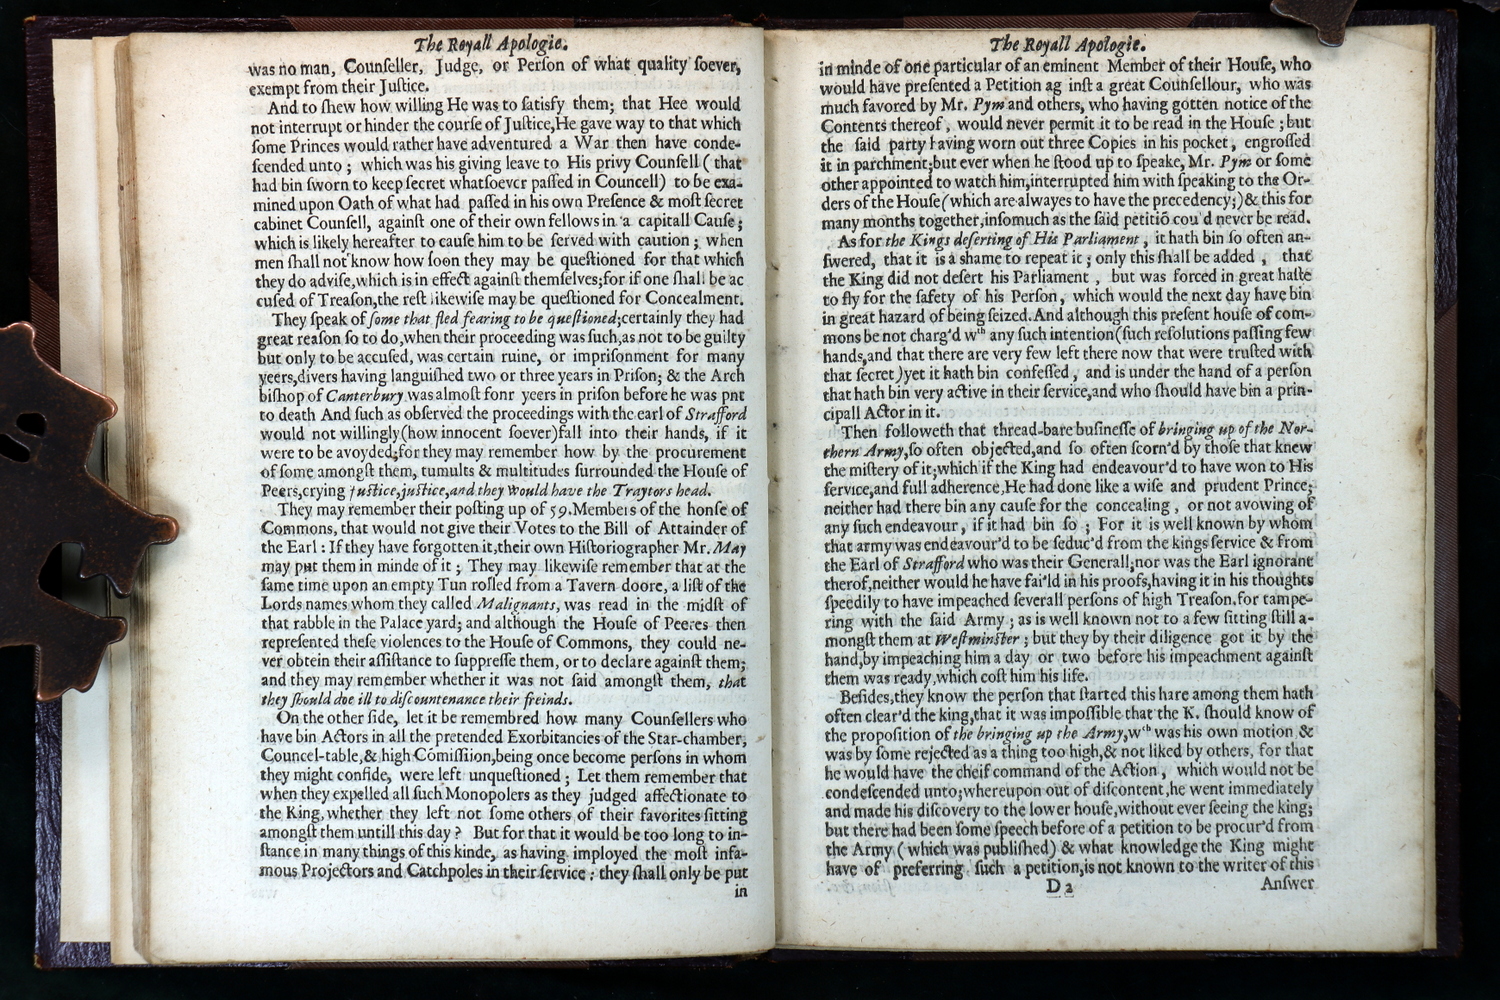 The Royall Apologie.
was no man, Counſeller, Judge, or Perſon of what quality ſoever,
exempt from their Juſtice.
And to ſhew how willing He was to ſatisfy them; that Hee would
not interrupt or hinder the courſe of Juſtice,He gave way to that which
ſome Princes would rather have adventured a War then have conde-
ſcended unto; which was his giving leave to His privy Counſell ( that
had bin ſworn to keep ſecret whatſoever paſſed in Councell) to be exa-
mined upon Oath of what had paſſed in his own Preſence & moſt ſecret
cabinet Counſell, againſt one of their own fellows in a capitall Cauſe;
which is likely hereafter to cauſe him to be ſerved with caution; when
men ſhall not know how ſoon they may be queſtioned for that which
they do adviſe,which is in effect againſt themſelves;for if one ſhall be ac
cuſed of Treaſon,the reſt likewiſe may be queſtioned for Concealment.
They ſpeak of ſome that fled fearing to be queſtioned;certainly they had
great reaſon ſo to do,when their proceeding was ſuch,as not to be guilty
but only to be accuſed, was certain ruine, or impriſonment for many
yeers,divers having languiſhed two or three years in Priſon; & the Arch
biſhop of Canterbury was almoſt fonr yeers in priſon before he was pnt
to death And ſuch as obſerved the proceedings with the earl of Strafford
would not willingly(how innocent ſoever)fall into their hands, if it
were to be avoyded;for they may remember how by the procurement
of ſome amongſt them, tumults & multitudes ſurrounded the Houſe of
Peers,crying juſtice,juſtice,and they would have the Traytors head.
They may remember their poſting up of 59.Members of the honſe of
Commons, that would not give their Votes to the Bill of Attainder of
the Earl: If they have forgotten it,their own Hiſtoriographer Mr. May
may put them in minde of it; They may likewiſe remember that at the
ſame time upon an empty Tun rolled from a Tavern doore, a liſt of the
Lords names whom they called Malignants, was read in the midſt of
that rabble in the Palace yard; and although the Houſe of Peeres then
repreſented theſe violences to the Houſe of Commons, they could ne-
ver obtein their aſſiſtance to ſuppreſſe them, or to declare againſt them;
and they may remember whether it was not ſaid amongſt them, that
they ſhould doe ill to diſcountenance their freinds.
On the other ſide, let it be remembred how many Counſellers who
have bin Actors in all the pretended Exorbitancies of the Star-chamber,
Councel-table,& high Cōmiſſiion,being once become perſons in whom
they might confide, were left unqueſtioned; Let them remember that
when they expelled all ſuch Monopolers as they judged affectionate to
the King, whether they left not ſome others of their favorites ſitting
amongſt them untill this day? But for that it would be too long to in-
ſtance in many things of this kinde, as having imployed the moſt infa-
mous Projectors and Catchpoles in their ſervice: they ſhall only be put
in
The Royall Apologie.
in minde of one particular of an eminent Member of their Houſe, who
would have preſented a Petition ag inſt a great Counſellour, who was
much favored by Mr. Pym and others, who having gotten notice of the
Contents thereof, would never permit it to be read in the Houſe; but
the ſaid party having worn out three Copies in his pocket, engroſſed
it in parchment;but ever when he ſtood up to ſpeake, Mr. Pym or ſome
other appointed to watch him,interrupted him with ſpeaking to the Or-
ders of the Houſe(which are alwayes to have the precedency;)& this for
many months together,inſomuch as the ſaid petitiō cou'd never be read.
As for the Kings deſerting of His Parliament, it hath bin ſo often an-
ſwered, that it is a ſhame to repeat it; only this ſhall be added, that
the King did not deſert his Parliament, but was forced in great haſte
to fly for the ſafety of his Perſon, which would the next day have bin
in great hazard of being ſeized.And although this preſent houſe of com-
mons be not charg'd wth any ſuch intention(ſuch reſolutions paſſing few
hands,and that there are very few left there now that were truſted with
that ſecret)yet it hath bin confeſſed, and is under the hand of a perſon
that hath bin very active in their ſervice,and who ſhould have bin a prin-
cipall Actor in it.
Then followeth that thread-bare buſineſſe of bringing up of the Nor-
thern Army,ſo often objected,and ſo often ſcorn'd by thoſe that knew
the miſtery of it;which if the King had endeavour'd to have won to His
ſervice,and full adherence,He had done like a wiſe and prudent Prince;
neither had there bin any cauſe for the concealing, or not avowing of
any ſuch endeavour, if it had bin ſo; For it is well known by whom
that army was endeavour'd to be ſeduc'd from the kings ſervice & from
the Earl of Strafford who was their Generall;nor was the Earl ignorant
therof,neither would he have fai'ld in his proofs,having it in his thoughts
ſpeedily to have impeached ſeverall perſons of high Treaſon,for tampe-
ring with the ſaid Army; as is well known not to a few ſitting ſtill a-
mongſt them at Weſtminſter; but they by their diligence got it by the
hand,by impeaching him a day or two before his impeachment againſt
them was ready,which coſt him his life.
Beſides,they know the perſon that ſtarted this hare among them hath
often clear'd the king,that it was impoſſible that the K. ſhould know of
the propoſition of the bringing up the Army,wth was his own motion &
was by ſome rejected as a thing too high,& not liked by others, for that
he would have the cheif command of the Action, which would not be
condeſcended unto;whereupon out of diſcontent,he went immediately
and made his diſcovery to the lower houſe,without ever ſeeing the king;
but there had been ſome ſpeech before of a petition to be procur'd from
the Army ( which was publiſhed) & what knowledge the King might
have of preferring ſuch a petition,is not known to the writer of this
D 2
Anſwer